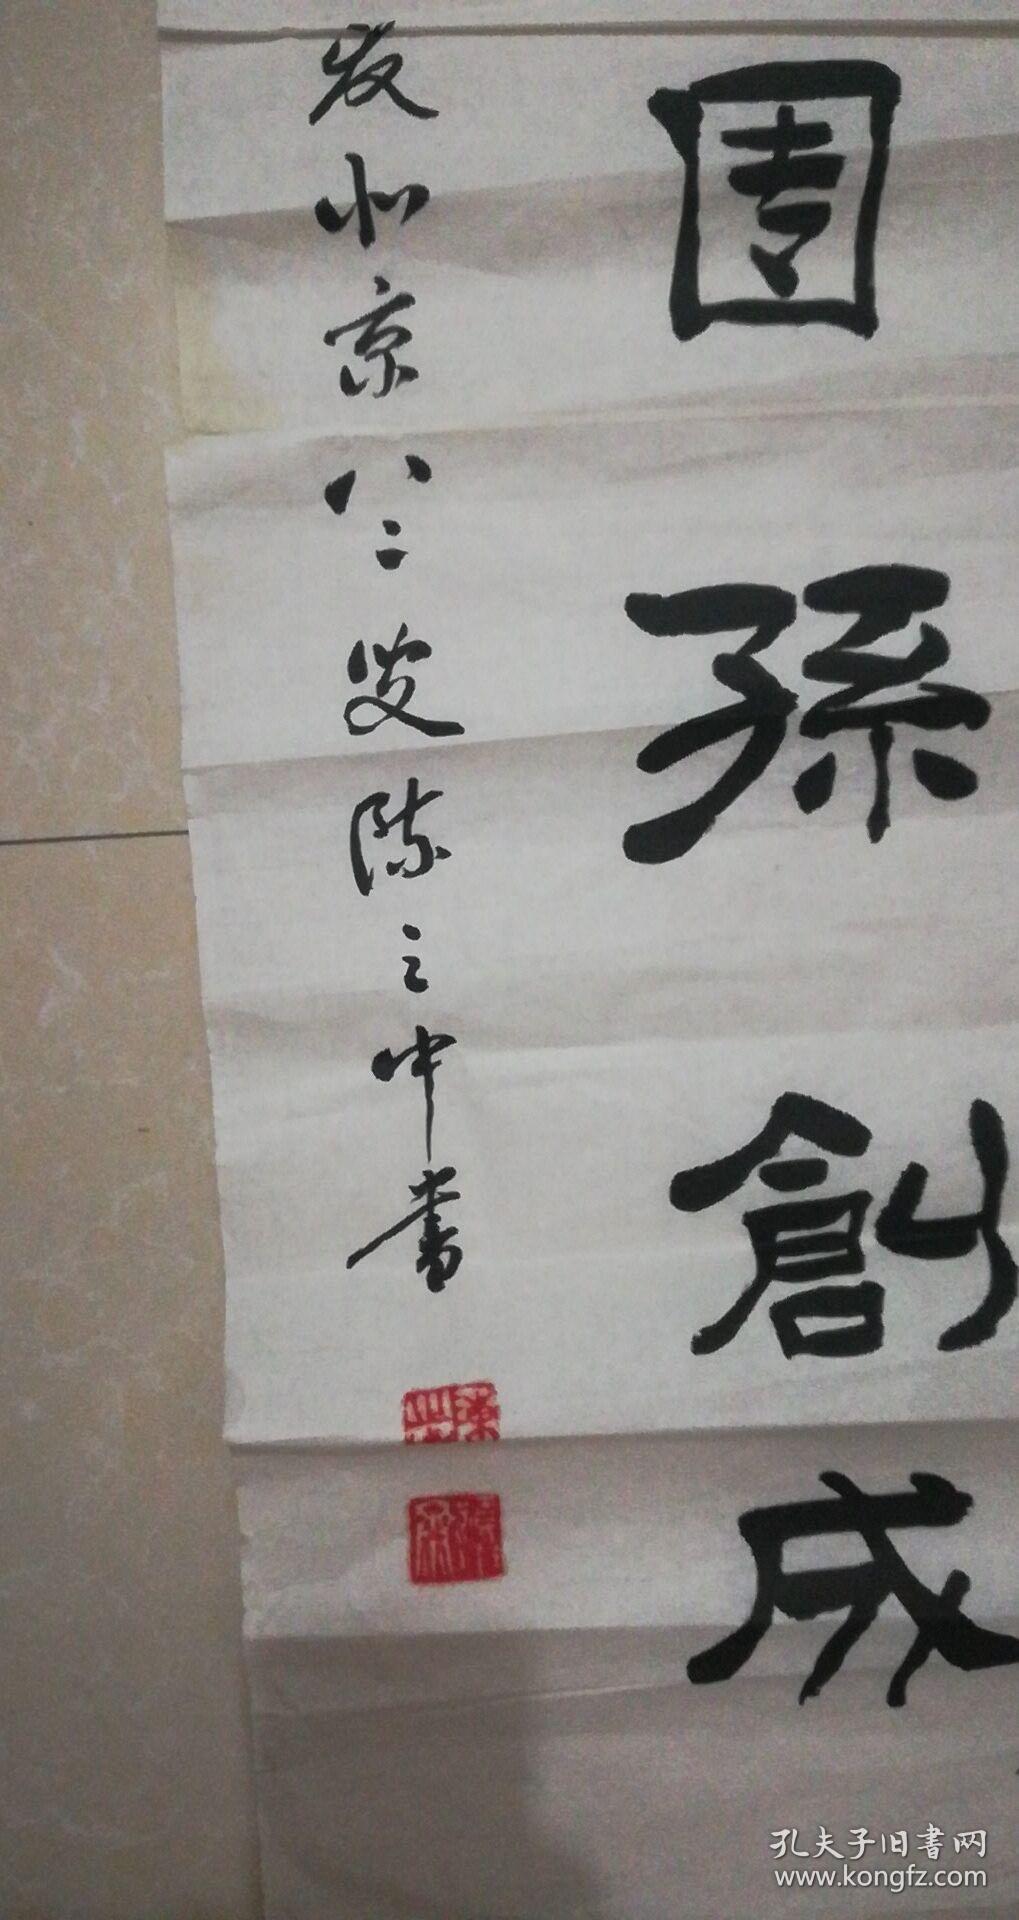 園孫創成
北京八二叟陳之中書
孔夫子旧書网
www.kongfz.com